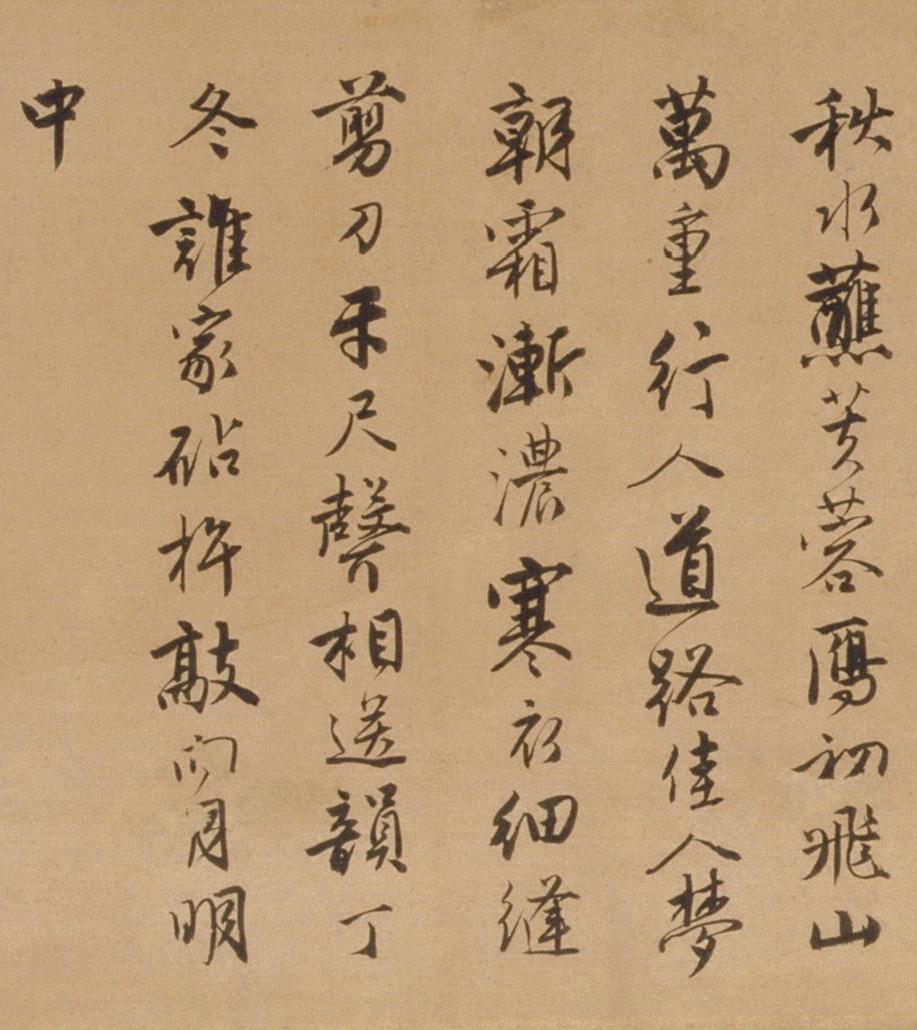 秋水蘸芙蓉鴈初飛山
萬重行人道路佳人夢
朝霜漸濃寒衣細縫
剪刀牙尺聲相送韻丁
冬誰家砧杵敲向月明
中